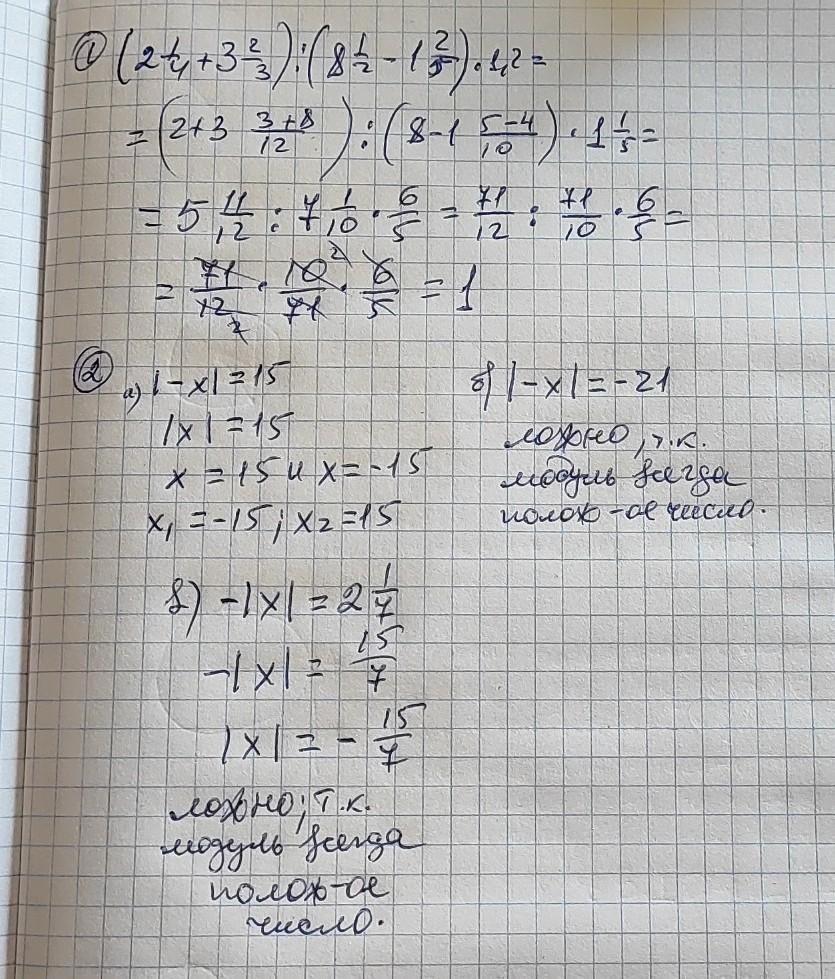 ① (2 1/4 + 3 2/3) : (8 1/2 - 1 2/5) · 1,2 =
= (2+3 (3+8)/12) : (8-1 (5-4)/10) · 1 1/5 =
= 5 11/12 : 7 1/10 · 6/5 = 71/12 : 71/10 · 6/5 =
= 71/12 2 · 10 2/71 · 6/5 = 1
② а) |-x| = 15
|x| = 15
x = 15 и x = -15
x₁ = -15; x₂ = 15
б) |-x| = -21
ложно, т.к.
модуль всегда
полож-ое число.
в) -|x| = 2 1/7
-|x| = 15/7
|x| = - 15/7
ложно; т.к.
модуль всегда
полож-ое
число.